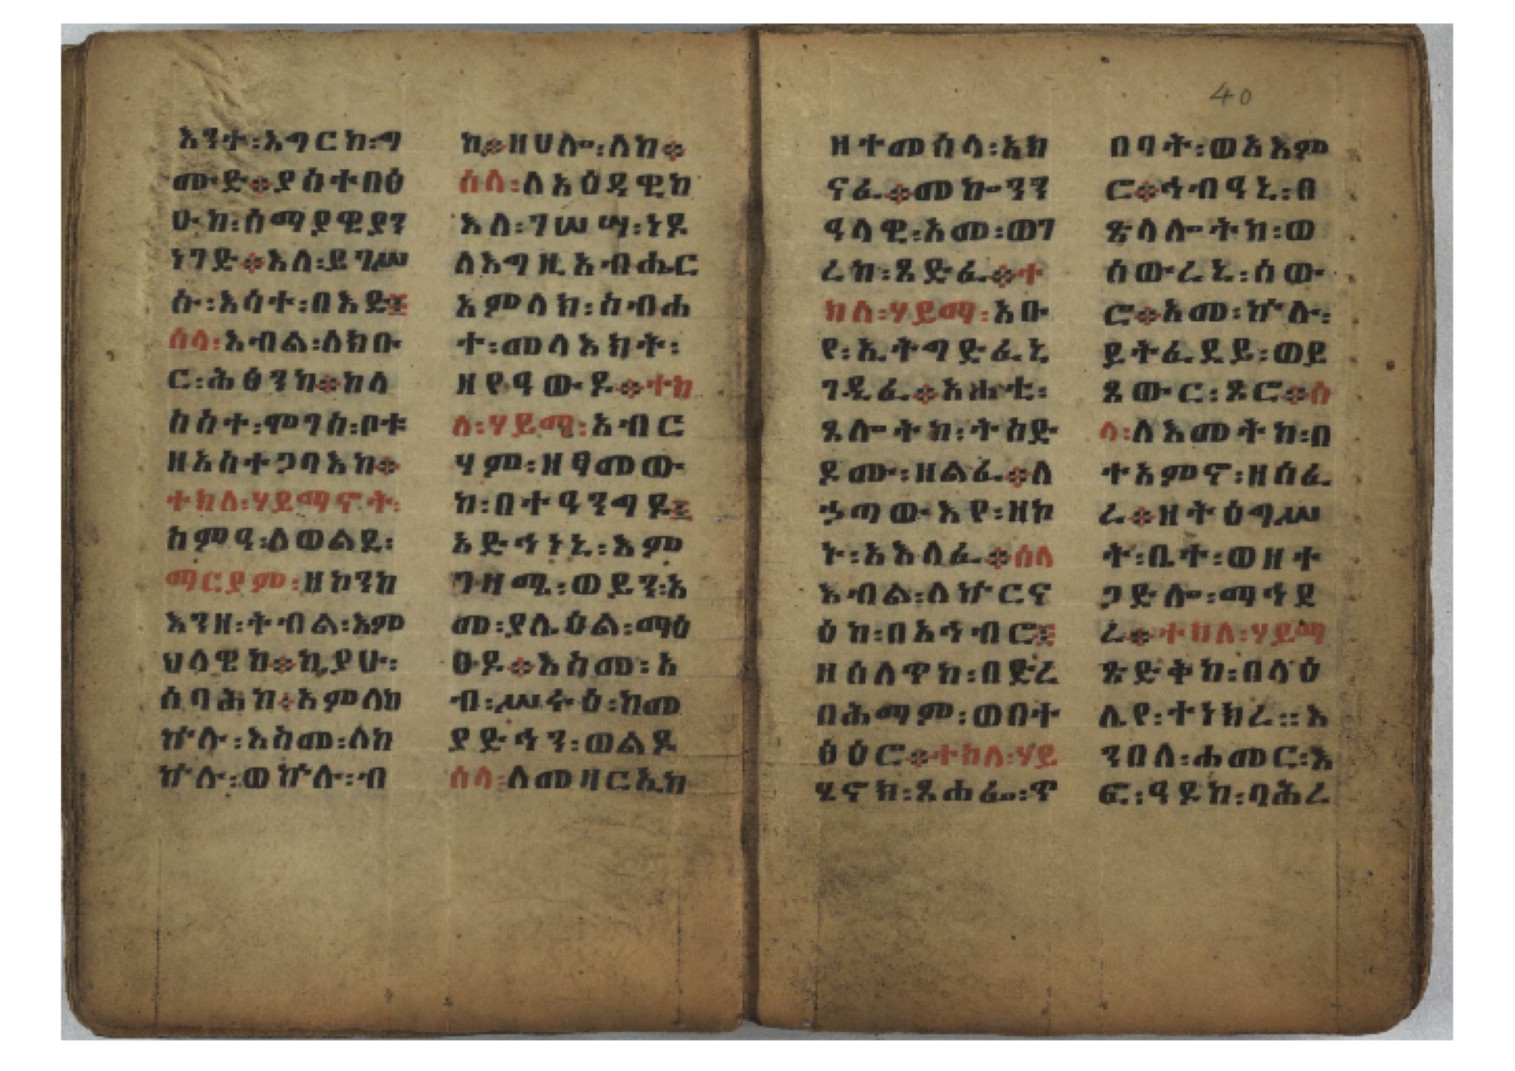 እንተ፡እግርከ፡ግ
ሙድ፨ያስተበፅ
ዑከ፡ሰማያዊያን
ነገድ፨እለ፡ይገሥ
ሱ፡እሳተ፡በእድ፤
ሰላ፡እብል፡ለክቡ
ር፡ሕፅንከ፨ከለ
ስስተ፡ሞገስ፡ቦቱ
ዘአስተጋባእከ፨
ተክለ፡ሃይማኖት፡
ከምዓ፡ለወልደ፡
ማርያም፡ዘኮንከ
እንዘ፡ትብል፡እም
ህላዊከ፨ኪያሁ፡
ሰባሕከ፨አምላከ
ኵሉ፡እስመ፡ለከ
ኵሉ፡ወኵሉ፡ብ
ከ፨ዘሀሎ፡ለከ፨
ሰላ፡ለአዕዳዊከ
እለ፡ገሠሣ፡ነዶ
ለእግዚአብሔር
አምላክ፡ስብሐ
ተ፡መላእክት፡
ዘየዓውዶ፨ተክ
ለ፡ሃይማ፡አብሮ
ሃም፡ዘፃመው
ከ፡በተዓንግዶ፤
አድኅነኒ፡እም
ግዛሚ፡ወይን፡አ
መ፡ያሌዕል፡ማዕ
ፁዶ፨እስመ፡አ
ብ፡ሥሩዕ፡ከመ
ያድኅን፡ወልዶ
ሰላ፡ለመዛርኢከ
40
ዘተመሰላ፡አክ
ናፈ፨መኰንን
ዓላዊ፡አመ፡ወገ
ረከ፡ጸድፈ፨ተ
ክለ፡ሃይማ፡አቡ
የ፡ኢትግድፈኒ
ገዲፈ፨አሐቲ፡
ጸሎትከ፡ትስድ
ዶሙ፡ዘልፈ፨ለ
ኃጣውእየ፡ዘኮ
ኑ፡አእላፈ፨ሰላ
እብል፡ለኵርና
ዕከ፡በአኅብሮ፤
ዘሰለጥከ፡በድረ
በሕማም፡ወበተ
ፅዕሮ፨ተክለ፡ሃይ
ሂኖክ፡ጸሐፌ፡ጥ
በባት፡ወአእም
ሮ፨ኅብዓኒ፡በ
ጽላሎትከ፡ወ
ሰውረኒ፡ሰው
ሮ፨አመ፡ኵሉ፡
ይትፈደይ፡ወይ
ጸውር፡ጾሮ፨ሰ
ላ፡ለእመትከ፡በ
ተአምኖ፡ዘሰፈ
ረ፨ዘትዕግሥ
ት፡ቤተ፡ወዘተ
ጋድሎ፡ማኅደ
ረ፨ተክለ፡ሃይማ
ጽድቅከ፡በላዕ
ሌየ፡ተነክረ።እ
ንበለ፡ሐመር፡እ
ፎ፡ዓዶከ፡ባሕረ